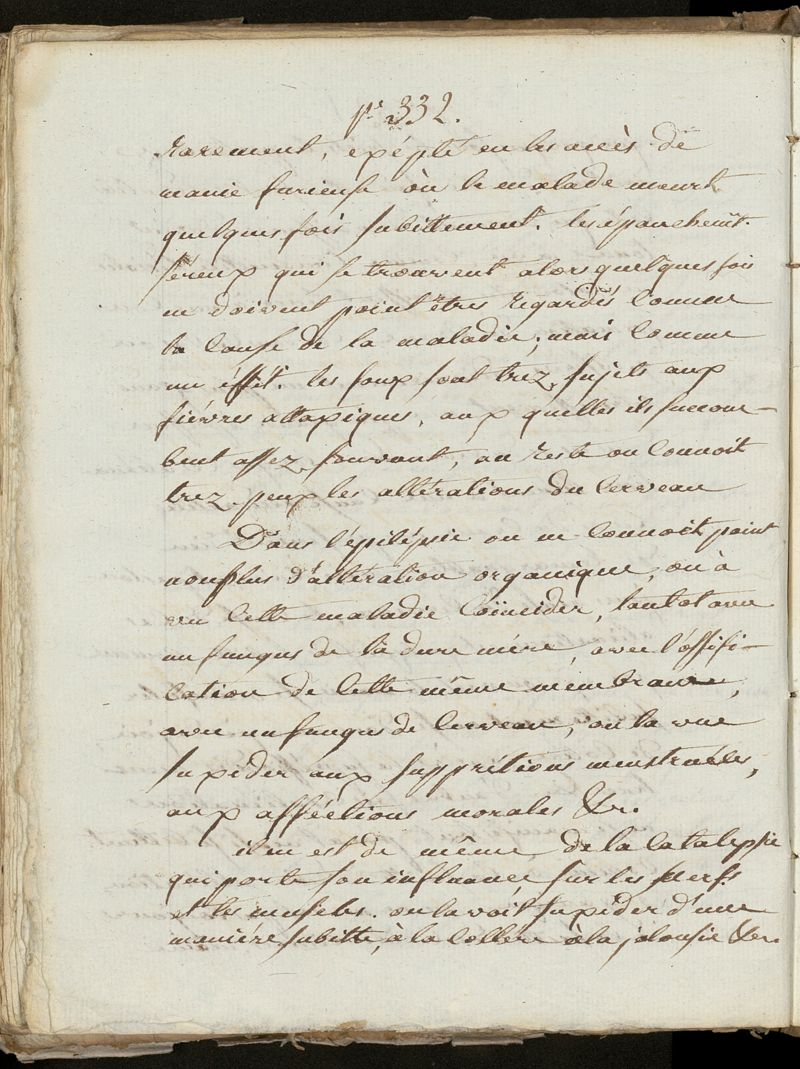 p.e 332.
rarement, exépté en les accès de
manie furieuse où le malade meurt
quelques fois subittement. les épanchemt.
séreux qui se trouvent alors quelques fois
ne doivent point êtres regardés comme
la cause de la maladie, mais comme
un éffét. les foux sont trez sujets aux
fiévres attapiques, aux quelles ils succom-
bent assez souvant, au reste on connoit
trez peux les altérations du cerveau
Dans l'épilépsie on ne connoit point
nonplus d'altération organique, on à
vu cette maladie coïncider, tantot avec
un fungus de la dure mére, avec l'óssifi-
cation de cette même membrane,
avec un fungus de cerveau, on la vue
supéder aux supprétions menstruéles,
aux afféctions morales &c.
il en est de même de la catalepsie
qui porte son influance sur les nerfs
et les muscles. on la voit supéder d'une
maniére subitte, à la collére à la jalousie &c.